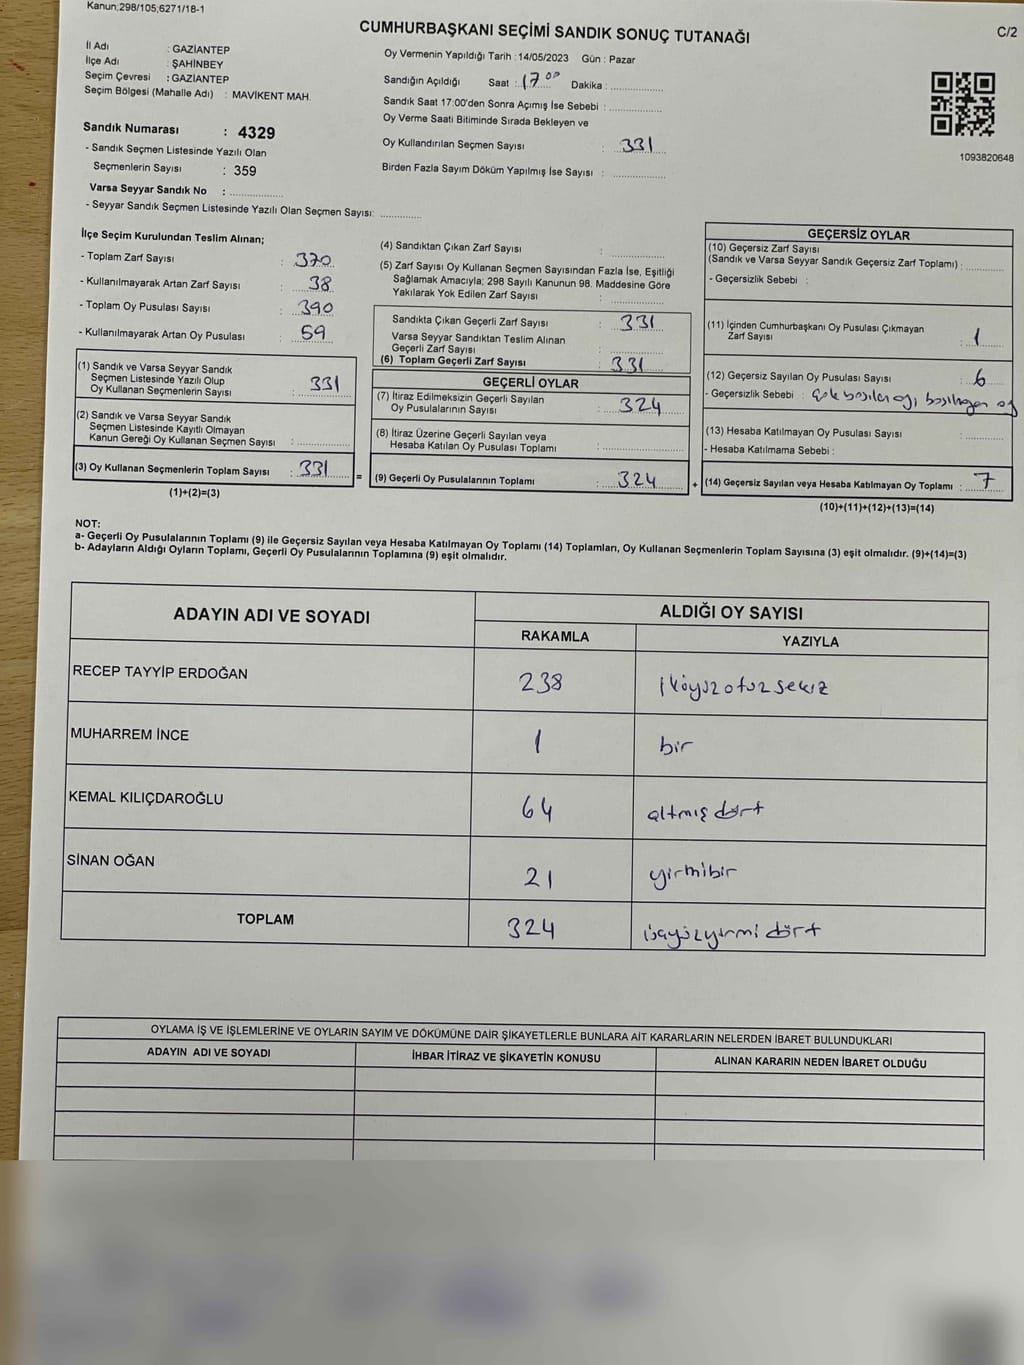 Kanun;298/105,6271/18-1
CUMHURBAŞKANI SEÇİMİ SANDIK SONUÇ TUTANAĞI
C/2
İl Adı : GAZİANTEP
İlçe Adı : ŞAHİNBEY
Seçim Çevresi : GAZİANTEP
Seçim Bölgesi (Mahalle Adı) : MAVİKENT MAH.
Sandık Numarası : 4329
- Sandık Seçmen Listesinde Yazılı Olan
Seçmenlerin Sayısı : 359
Varsa Seyyar Sandık No : ..............
- Seyyar Sandık Seçmen Listesinde Yazılı Olan Seçmen Sayısı: ..............
Oy Vermenin Yapıldığı Tarih : 14/05/2023 Gün : Pazar
Sandığın Açıldığı Saat : 17 00 Dakika : ..............
Sandık Saat 17:00'den Sonra Açımış İse Sebebi : ..............
Oy Verme Saati Bitiminde Sırada Bekleyen ve
Oy Kullandırılan Seçmen Sayısı : 331
Birden Fazla Sayım Döküm Yapılmış İse Sayısı : ..............
1093820648
İlçe Seçim Kurulundan Teslim Alınan;
- Toplam Zarf Sayısı : 370
- Kullanılmayarak Artan Zarf Sayısı : 38
- Toplam Oy Pusulası Sayısı : 390
- Kullanılmayarak Artan Oy Pusulası : 59
(1) Sandık ve Varsa Seyyar Sandık
Seçmen Listesinde Yazılı Olup
Oy Kullanan Seçmenlerin Sayısı : 331
(2) Sandık ve Varsa Seyyar Sandık
Seçmen Listesinde Kayıtlı Olmayan
Kanun Gereği Oy Kullanan Seçmen Sayısı : ..............
(3) Oy Kullanan Seçmenlerin Toplam Sayısı : 331
(1)+(2)=(3)
(4) Sandıktan Çıkan Zarf Sayısı : ..............
(5) Zarf Sayısı Oy Kullanan Seçmen Sayısından Fazla İse, Eşitliği
Sağlamak Amacıyla; 298 Sayılı Kanunun 98. Maddesine Göre
Yakılarak Yok Edilen Zarf Sayısı : ..............
Sandıkta Çıkan Geçerli Zarf Sayısı : 331
Varsa Seyyar Sandıktan Teslim Alınan
Geçerli Zarf Sayısı : ..............
(6) Toplam Geçerli Zarf Sayısı : 331
GEÇERLİ OYLAR
(7) İtiraz Edilmeksizin Geçerli Sayılan
Oy Pusulalarının Sayısı : 324
(8) İtiraz Üzerine Geçerli Sayılan veya
Hesaba Katılan Oy Pusulası Toplamı : ..............
= (9) Geçerli Oy Pusulalarının Toplamı : 324
GEÇERSİZ OYLAR
(10) Geçersiz Zarf Sayısı
(Sandık ve Varsa Seyyar Sandık Geçersiz Zarf Toplamı) : ..............
- Geçersizlik Sebebi :
(11) İçinden Cumhurbaşkanı Oy Pusulası Çıkmayan
Zarf Sayısı : 1
(12) Geçersiz Sayılan Oy Pusulası Sayısı : 6
- Geçersizlik Sebebi :
(13) Hesaba Katılmayan Oy Pusulası Sayısı : ..............
- Hesaba Katılmama Sebebi :
+ (14) Geçersiz Sayılan veya Hesaba Katılmayan Oy Toplamı : 7
(10)+(11)+(12)+(13)=(14)
NOT:
a- Geçerli Oy Pusulalarının Toplamı (9) ile Geçersiz Sayılan veya Hesaba Katılmayan Oy Toplamı (14) Toplamları, Oy Kullanan Seçmenlerin Toplam Sayısına (3) eşit olmalıdır. (9)+(14)=(3)
b- Adayların Aldığı Oyların Toplamı, Geçerli Oy Pusulalarının Toplamına (9) eşit olmalıdır.
ADAYIN ADI VE SOYADI ALDIĞI OY SAYISI
RAKAMLA YAZIYLA
RECEP TAYYİP ERDOĞAN 238 ikiyüzotuzsekiz
MUHARREM İNCE 1 bir
KEMAL KILIÇDAROĞLU 64 altmış dört
SİNAN OĞAN 21 yirmibir
TOPLAM 324 üçyüzyirmi dört
OYLAMA İŞ VE İŞLEMLERİNE VE OYLARIN SAYIM VE DÖKÜMÜNE DAİR ŞİKAYETLERLE BUNLARA AİT KARARLARIN NELERDEN İBARET BULUNDUKLARI
ADAYIN ADI VE SOYADI İHBAR İTİRAZ VE ŞİKAYETİN KONUSU ALINAN KARARIN NEDEN İBARET OLDUĞU